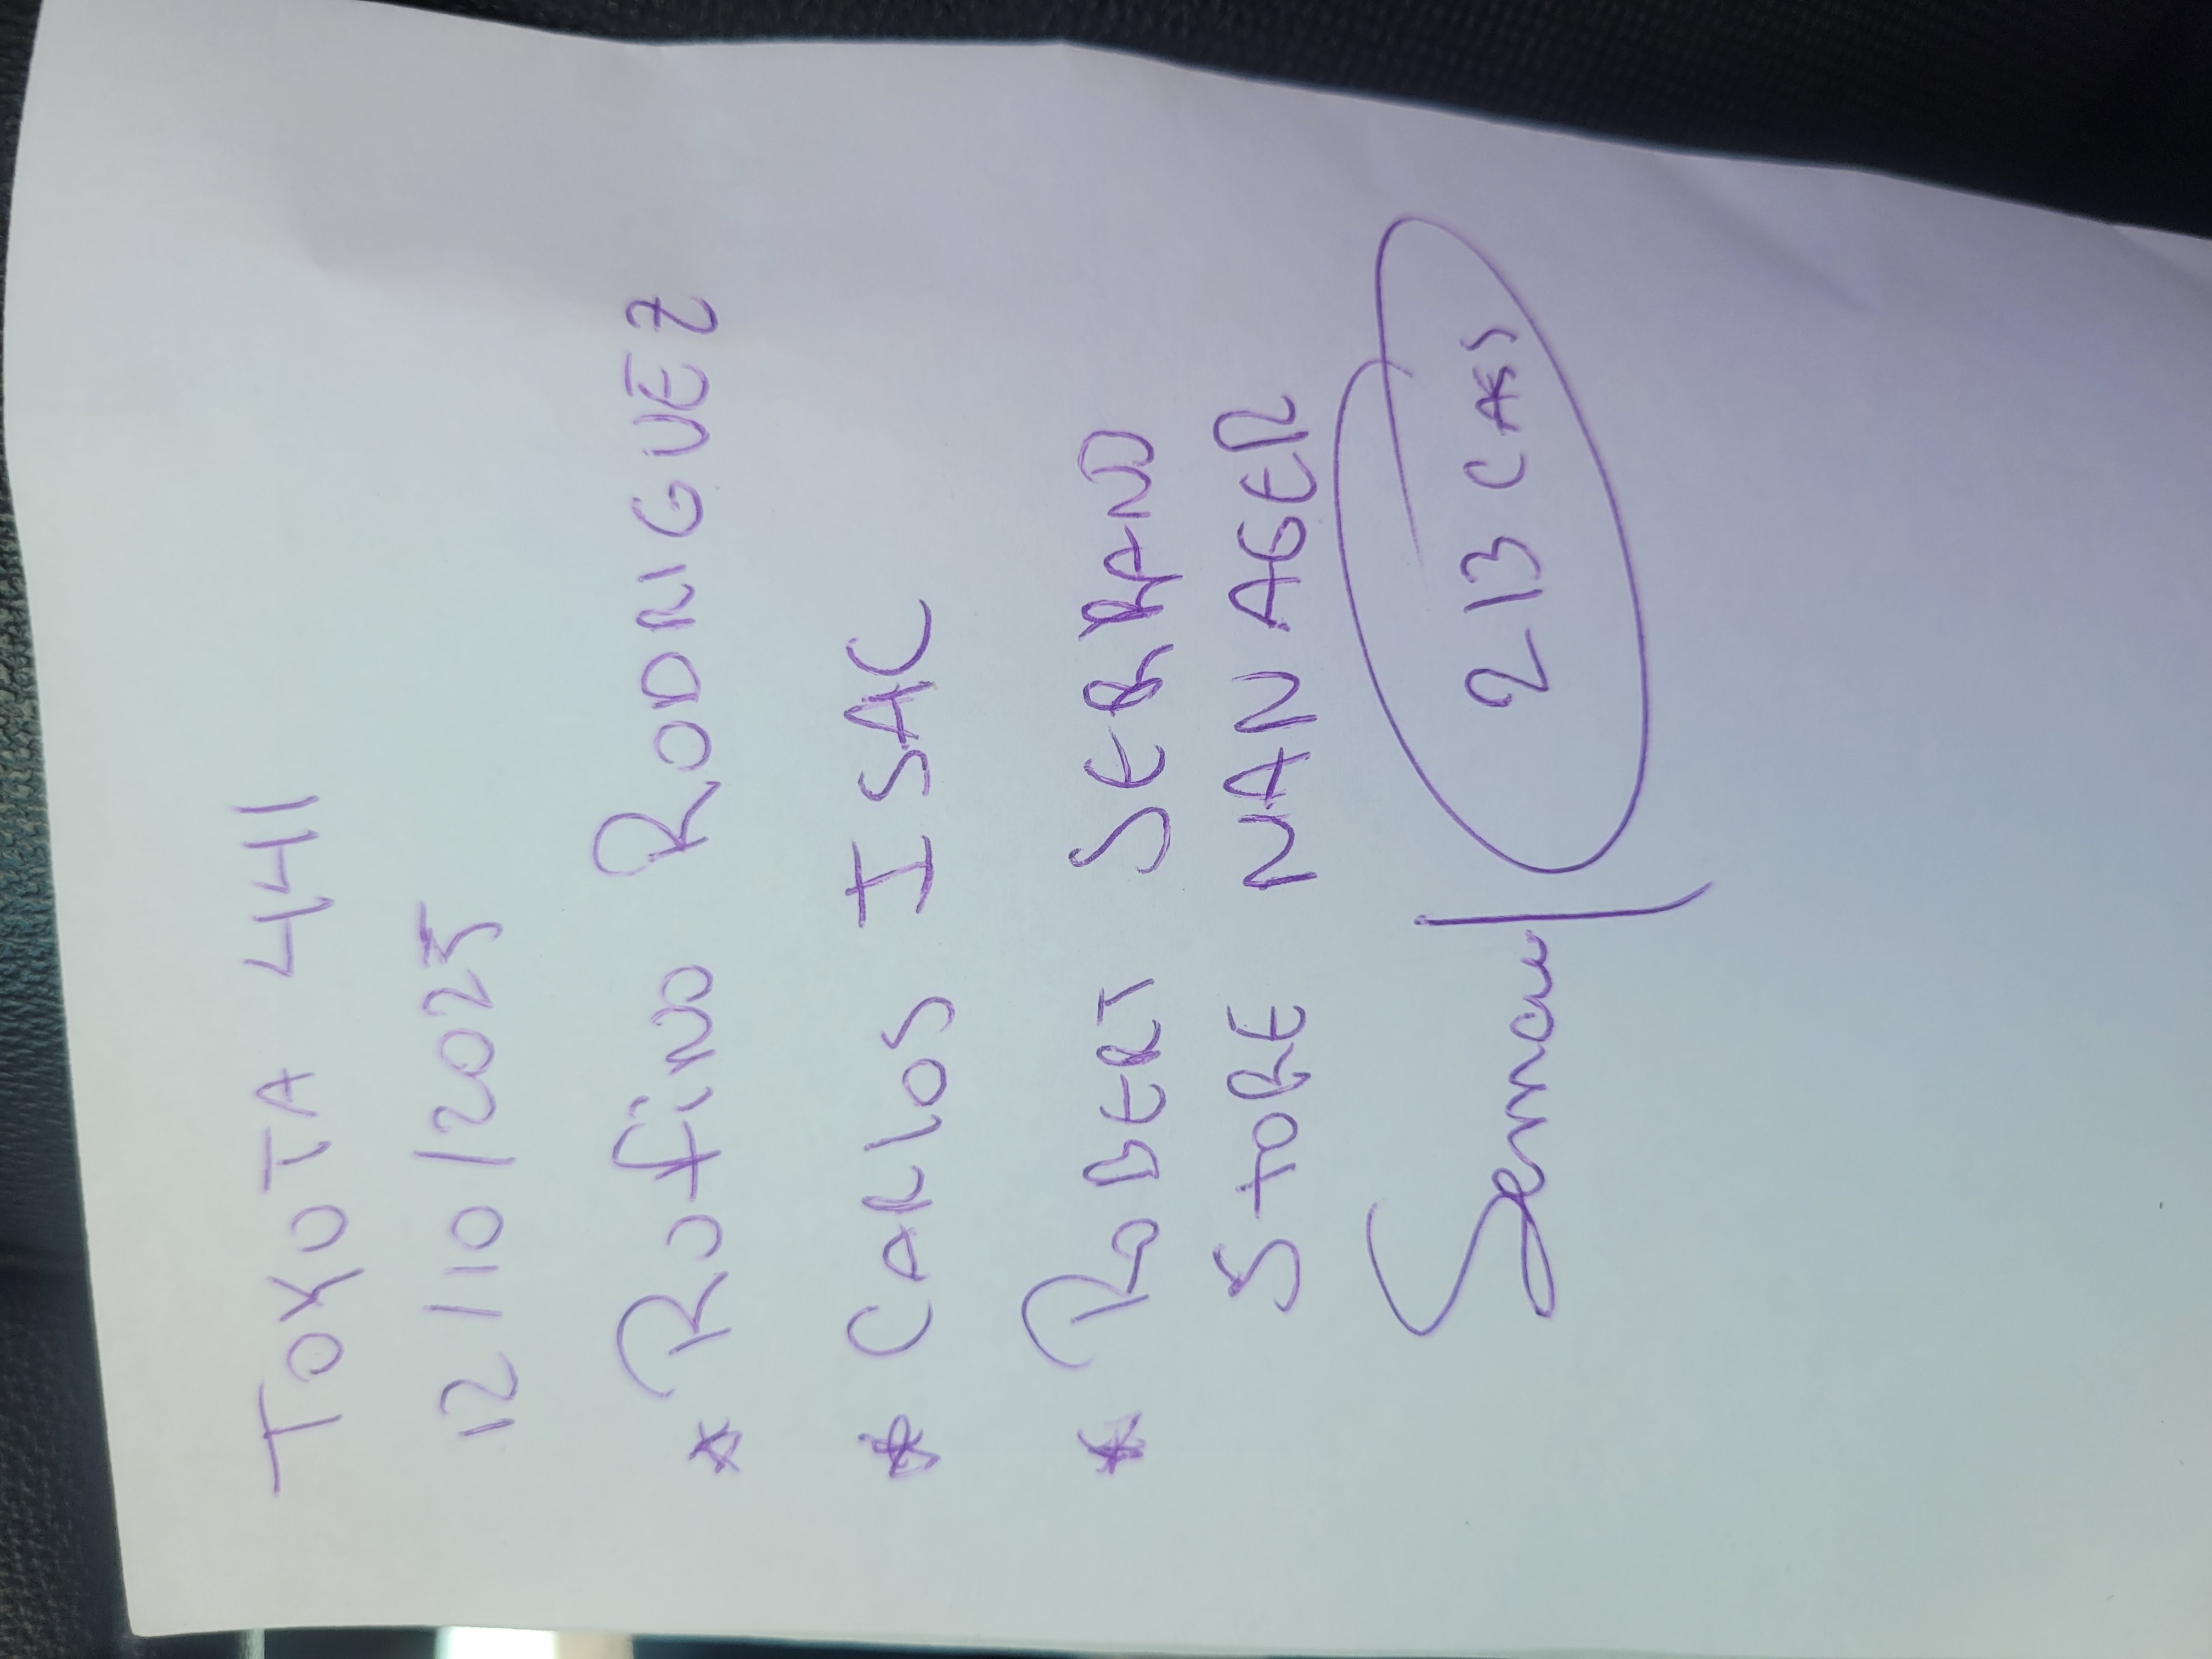 TOYOTA 441
12/10/2025
* Rufino RODRIGUEZ
* CARlOS ISAC
* RoBERT SERRANO
STORE MANAGER
213 CAS